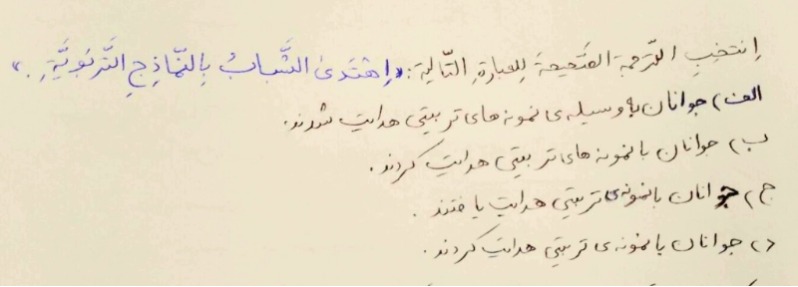 اِنتخِبِ التّرجمةَ الصّحیحةَ لِلعبارةِ التّالیة: «اِهْتَدیٰ الشَّبابُ بِالنّماذِجِ التَّربَویَّةِ.»
الف) جوانان به وسیله‌ی نمونه‌های تربیتی هدایت شدند.
ب) جوانان با نمونه‌های تربیتی هدایت کردند.
ج) جوانان با نمونه‌ی تربیتی هدایت یافتند.
د) جوانان با نمونه‌ی تربیتی هدایت کردند.